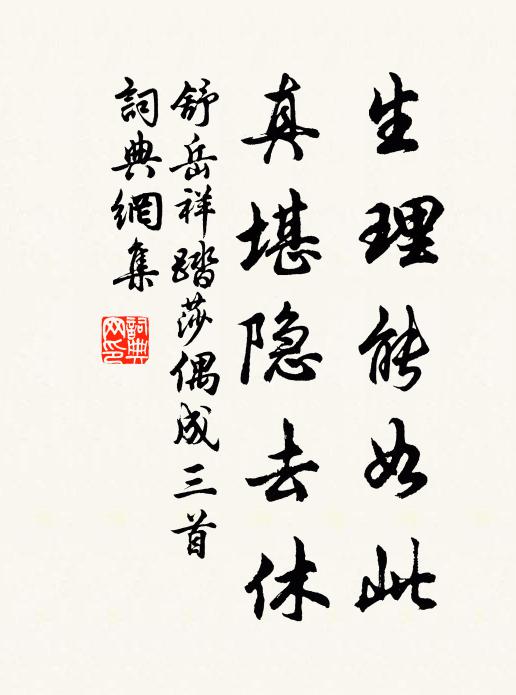 生理能如此
真堪隐去休
舒岳祥踏莎偶成三首
詞典網集
詞典网印